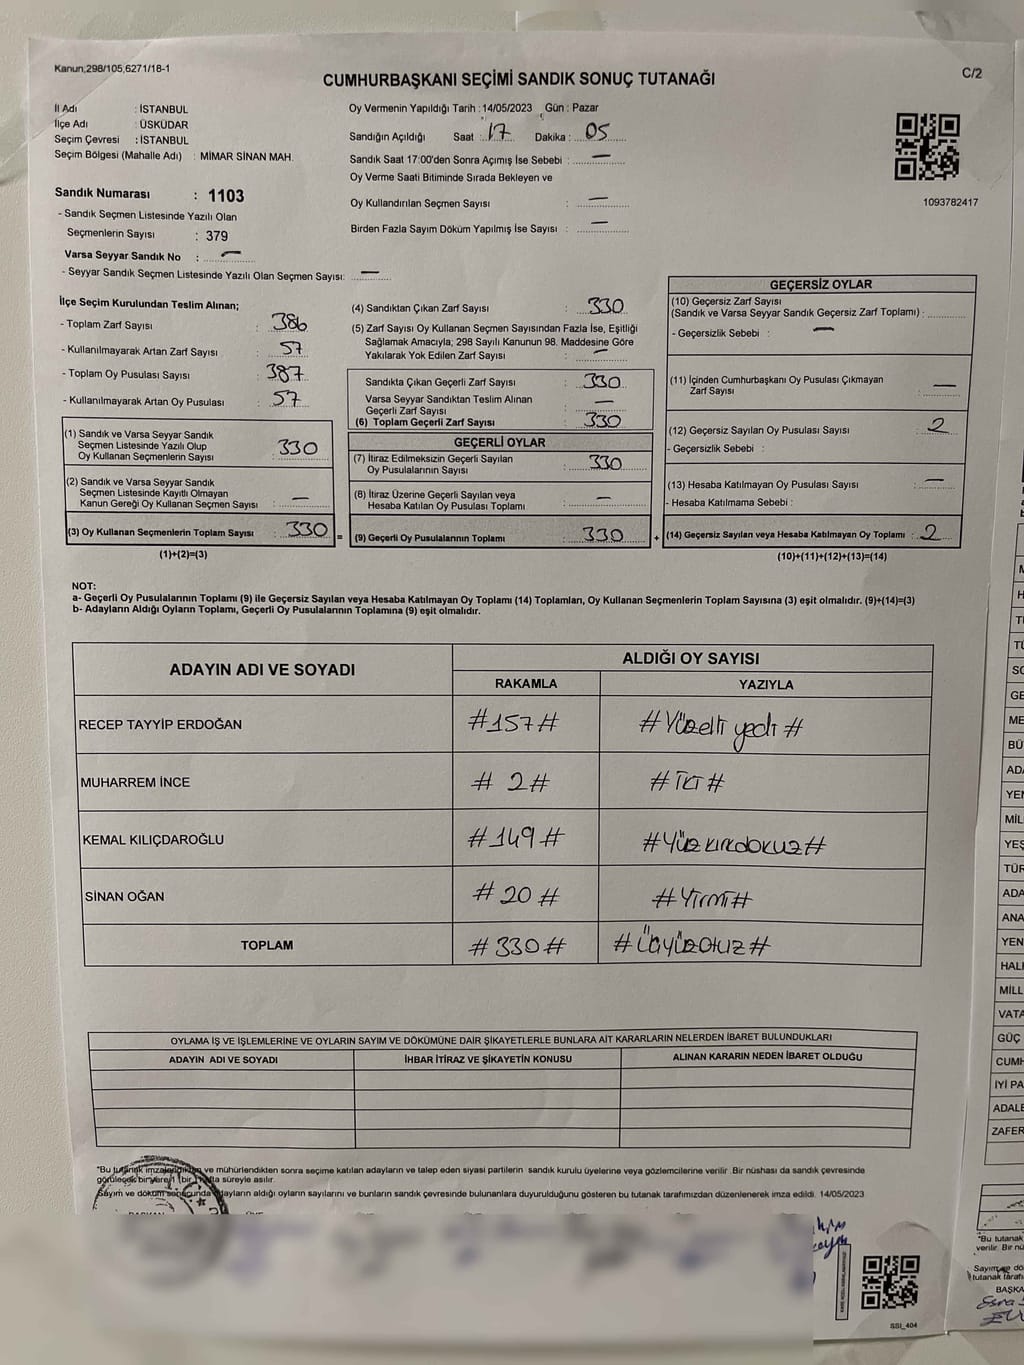 Kanun,298/105,6271/18-1
C/2
CUMHURBAŞKANI SEÇİMİ SANDIK SONUÇ TUTANAĞI
İl Adı : İSTANBUL
İlçe Adı : ÜSKÜDAR
Seçim Çevresi : İSTANBUL
Seçim Bölgesi (Mahalle Adı) : MİMAR SİNAN MAH.
Sandık Numarası : 1103
- Sandık Seçmen Listesinde Yazılı Olan
Seçmenlerin Sayısı : 379
Varsa Seyyar Sandık No : —
- Seyyar Sandık Seçmen Listesinde Yazılı Olan Seçmen Sayısı: —
Oy Vermenin Yapıldığı Tarih : 14/05/2023 Gün : Pazar
Sandığın Açıldığı Saat : 17 Dakika : 05
Sandık Saat 17:00'den Sonra Açımış İse Sebebi : —
Oy Verme Saati Bitiminde Sırada Bekleyen ve
Oy Kullandırılan Seçmen Sayısı : —
Birden Fazla Sayım Döküm Yapılmış İse Sayısı : —
1093782417
İlçe Seçim Kurulundan Teslim Alınan;
- Toplam Zarf Sayısı : 386
- Kullanılmayarak Artan Zarf Sayısı : 57
- Toplam Oy Pusulası Sayısı : 387
- Kullanılmayarak Artan Oy Pusulası : 57
(1) Sandık ve Varsa Seyyar Sandık
Seçmen Listesinde Yazılı Olup
Oy Kullanan Seçmenlerin Sayısı : 330
(2) Sandık ve Varsa Seyyar Sandık
Seçmen Listesinde Kayıtlı Olmayan
Kanun Gereği Oy Kullanan Seçmen Sayısı : —
(3) Oy Kullanan Seçmenlerin Toplam Sayısı : 330 =
(1)+(2)=(3)
(4) Sandıktan Çıkan Zarf Sayısı : 330
(5) Zarf Sayısı Oy Kullanan Seçmen Sayısından Fazla İse, Eşitliği
Sağlamak Amacıyla; 298 Sayılı Kanunun 98. Maddesine Göre
Yakılarak Yok Edilen Zarf Sayısı : —
Sandıkta Çıkan Geçerli Zarf Sayısı : 330
Varsa Seyyar Sandıktan Teslim Alınan
Geçerli Zarf Sayısı : —
(6) Toplam Geçerli Zarf Sayısı : 330
GEÇERLİ OYLAR
(7) İtiraz Edilmeksizin Geçerli Sayılan
Oy Pusulalarının Sayısı : 330
(8) İtiraz Üzerine Geçerli Sayılan veya
Hesaba Katılan Oy Pusulası Toplamı : —
(9) Geçerli Oy Pusulalarının Toplamı : 330 +
GEÇERSİZ OYLAR
(10) Geçersiz Zarf Sayısı
(Sandık ve Varsa Seyyar Sandık Geçersiz Zarf Toplamı) :
- Geçersizlik Sebebi : —
(11) İçinden Cumhurbaşkanı Oy Pusulası Çıkmayan
Zarf Sayısı : —
(12) Geçersiz Sayılan Oy Pusulası Sayısı : 2
- Geçersizlik Sebebi :
(13) Hesaba Katılmayan Oy Pusulası Sayısı : —
- Hesaba Katılmama Sebebi :
(14) Geçersiz Sayılan veya Hesaba Katılmayan Oy Toplamı : 2
(10)+(11)+(12)+(13)=(14)
NOT:
a- Geçerli Oy Pusulalarının Toplamı (9) ile Geçersiz Sayılan veya Hesaba Katılmayan Oy Toplamı (14) Toplamları, Oy Kullanan Seçmenlerin Toplam Sayısına (3) eşit olmalıdır. (9)+(14)=(3)
b- Adayların Aldığı Oyların Toplamı, Geçerli Oy Pusulalarının Toplamına (9) eşit olmalıdır.
ADAYIN ADI VE SOYADI
ALDIĞI OY SAYISI
RAKAMLA YAZIYLA
RECEP TAYYİP ERDOĞAN #157# #Yüzelli yedi#
MUHARREM İNCE # 2# #İKİ#
KEMAL KILIÇDAROĞLU #149# #Yüzkırkdokuz#
SİNAN OĞAN #20# #Yirmi#
TOPLAM #330# #Üçyüzotuz#
OYLAMA İŞ VE İŞLEMLERİNE VE OYLARIN SAYIM VE DÖKÜMÜNE DAİR ŞİKAYETLERLE BUNLARA AİT KARARLARIN NELERDEN İBARET BULUNDUKLARI
ADAYIN ADI VE SOYADI İHBAR İTİRAZ VE ŞİKAYETİN KONUSU ALINAN KARARIN NEDEN İBARET OLDUĞU
"Bu tutanak imzalandıktan ve mühürlendikten sonra seçime katılan adayların ve talep eden siyasi partilerin sandık kurulu üyelerine veya gözlemcilerine verilir. Bir nüshası da sandık çevresinde
görülecek bir yere 1 (bir) hafta süreyle asılır.
Sayım ve döküm sonucunda adayların aldığı oyların sayılarını ve bunların sandık çevresinde bulunanlara duyurulduğunu gösteren bu tutanak tarafımızdan düzenlenerek imza edildi. 14/05/2023
SSI_404
GÜÇ
İYİ PA
ZAFER
"Bu tutanak
verilir. Bir nü
Sayım ve dö
tutanak tarafı
BAŞKA